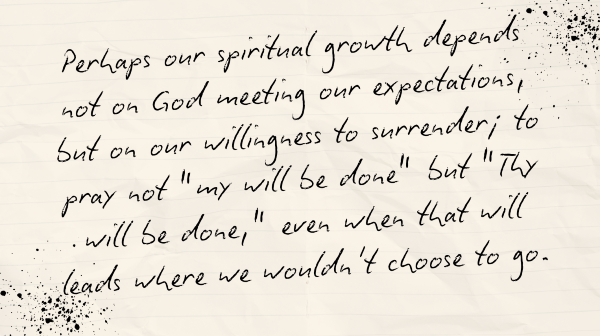 Perhaps our spiritual growth depends
not on God meeting our expectations,
but on our willingness to surrender; to
pray not "my will be done" but "Thy
will be done," even when that will
leads where we wouldn't choose to go.